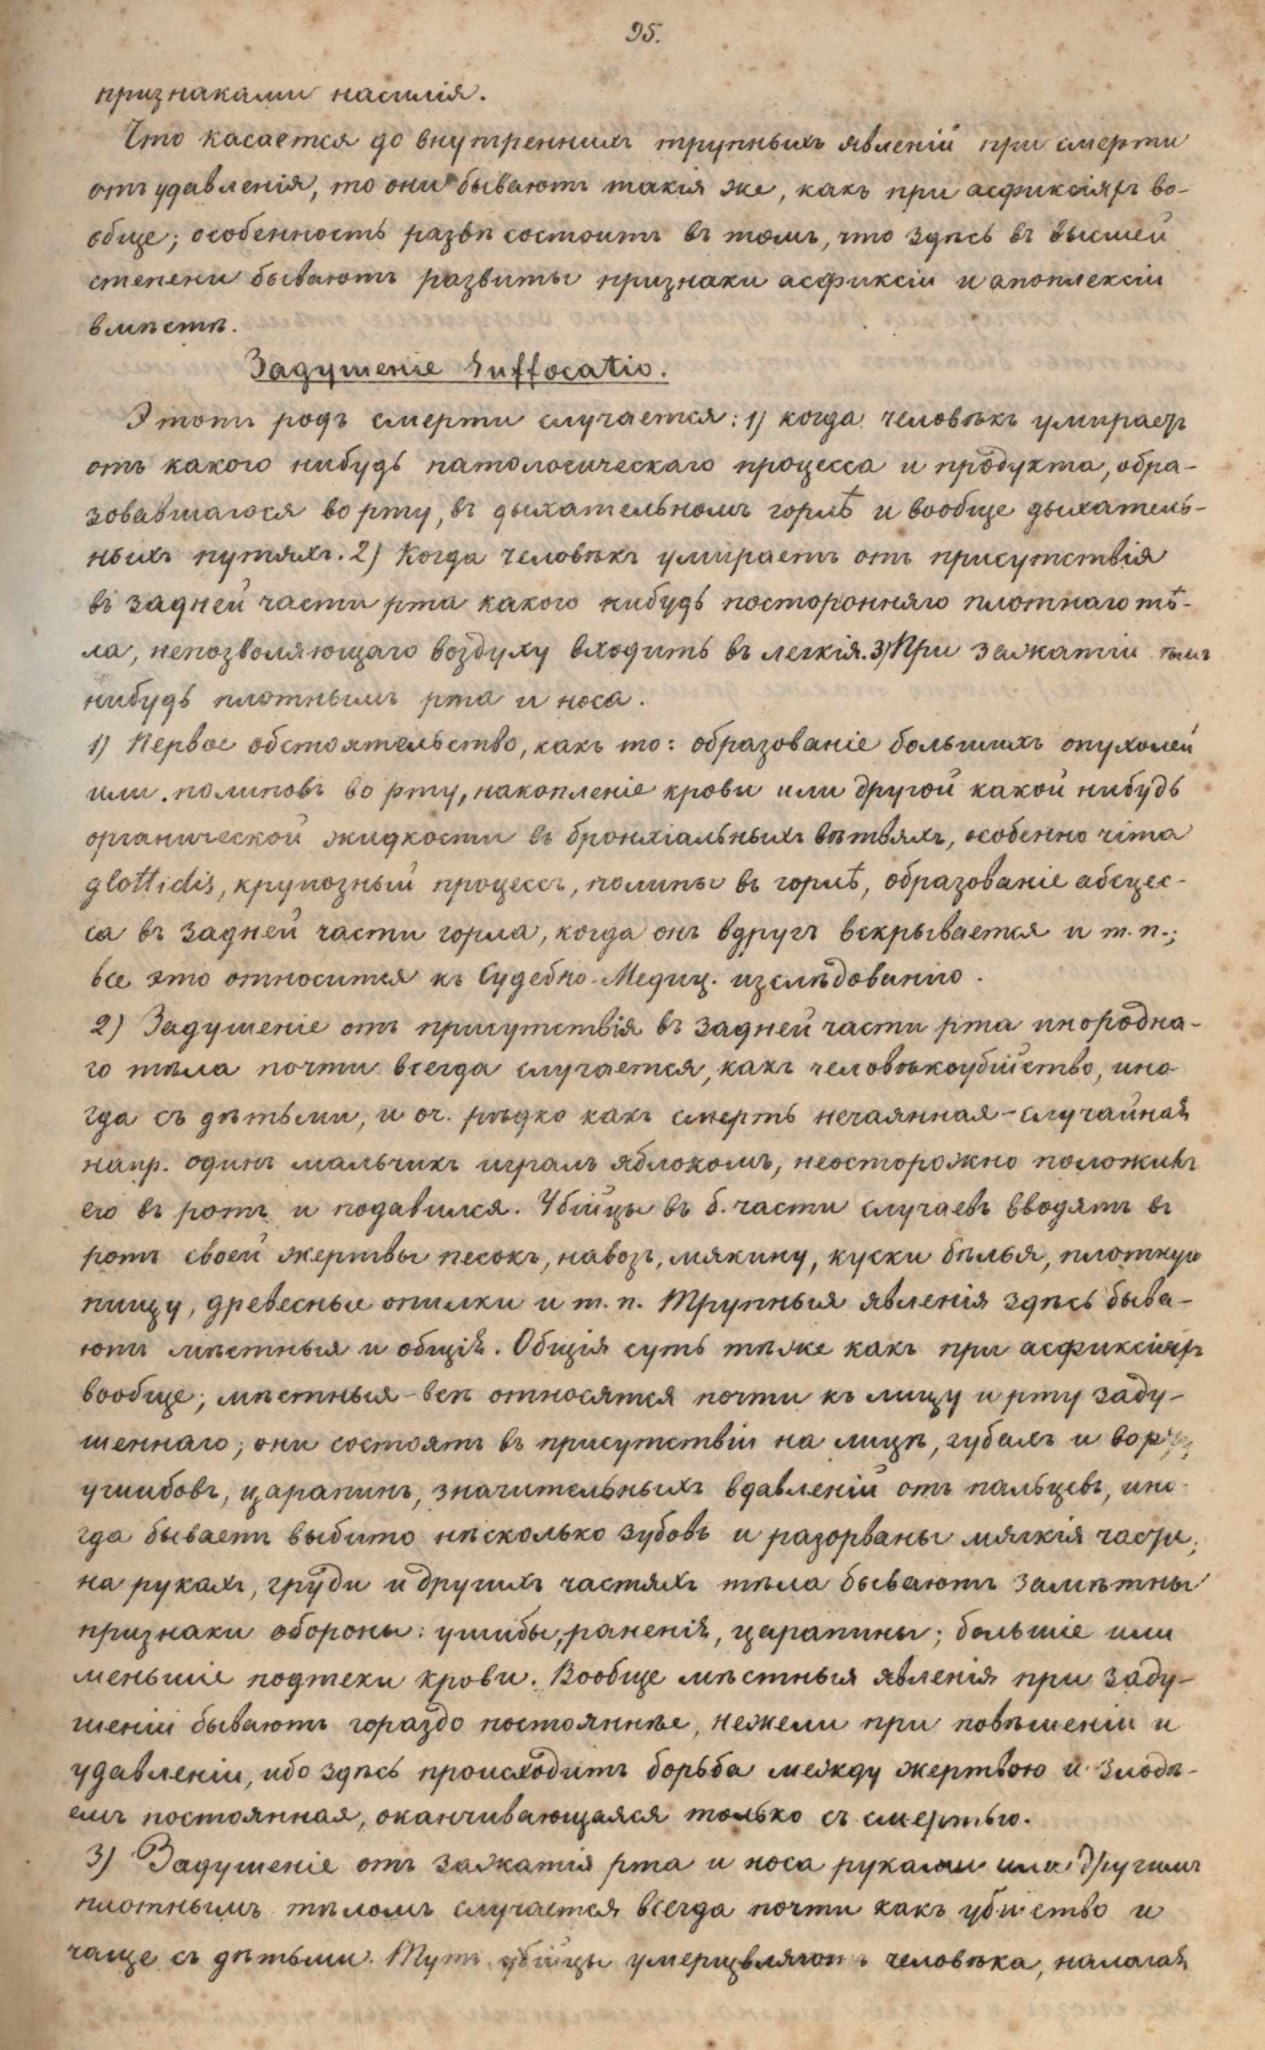 95.
признаками насилія.
Что касается до внутреннихъ трупныхъ явленій при смерти
отъ удавленія, то они бываютъ такія же, какъ при асфиксіяхъ во-
обще; особенность развѣ состоитъ въ томъ, что здѣсь въ высшей
степени бываютъ развиты признаки асфиксіи и апоплексіи
вмѣстѣ.
Задушеніе Suffocatio.
Этотъ родъ смерти случается: 1) когда человѣкъ умираетъ
отъ какого нибудь патологическаго процесса и продукта, обра-
зовавшагося во рту, въ дыхательномъ горлѣ и вообще дыхатель-
ныхъ путяхъ. 2) Когда человѣкъ умираетъ отъ присутствія
въ задней части рта какого нибудь посторонняго плотнаго тѣ-
ла, непозволяющаго воздуху входить въ легкія. 3) При зажатіи чѣмъ
нибудь плотнымъ рта и носа.
1) Первое обстоятельство, какъ то: образованіе большихъ опухолей
или полиповъ во рту, накопленіе крови или другой какой нибудь
органической жидкости въ бронхіальныхъ вѣтвяхъ, особенно
glottidis, крупозный процессъ, полипы въ горлѣ, образованіе абсцес-
са въ задней части горла, когда онъ вдругъ вскрывается и т. п.;
все это относится къ Судебно-Медиц. изслѣдованію.
2) Задушеніе отъ присутствія въ задней части рта инородна-
го тѣла почти всегда случается, какъ человѣкоубійство, ино-
гда съ дѣтьми, и оч. рѣдко какъ смерть нечаянная-случайная
напр. одинъ мальчикъ игралъ яблокомъ, неосторожно положивъ
его въ ротъ и подавился. Убійцы въ б. части случаевъ вводятъ въ
ротъ своей жертвы песокъ, навозъ, мякину, куски бѣлья, плотную
пищу, древесные опилки и т. п. Трупныя явленія здѣсь быва-
ютъ мѣстныя и общія. Общія суть тѣже какъ при асфиксіяхъ
вообще; мѣстныя-всѣ относятся почти къ лицу и рту заду-
шеннаго; они состоятъ въ присутствіи на лицѣ, губахъ и во рту
ушибовъ, царапинъ, значительныхъ вдавленій отъ пальцевъ, ино-
гда бываетъ выбито нѣсколько зубовъ и разорваны мягкія части;
на рукахъ, груди и другихъ частяхъ тѣла бываютъ замѣтны
признаки обороны: ушибы, раненія, царапины; большіе или
меньшіе подтеки крови. Вообще мѣстныя явленія при заду-
шеніи бываютъ гораздо постояннѣе, нежели при повѣшеніи и
удавленіи, ибо здѣсь происходитъ борьба между жертвою и злодѣ-
емъ постоянная, оканчивающаяся только съ смертью.
3) Задушеніе отъ зажатія рта и носа руками или другимъ
плотнымъ тѣломъ случается всегда почти какъ убійство и
чаще съ дѣтьми. Тутъ убійцы умерщвляютъ человѣка, налагая